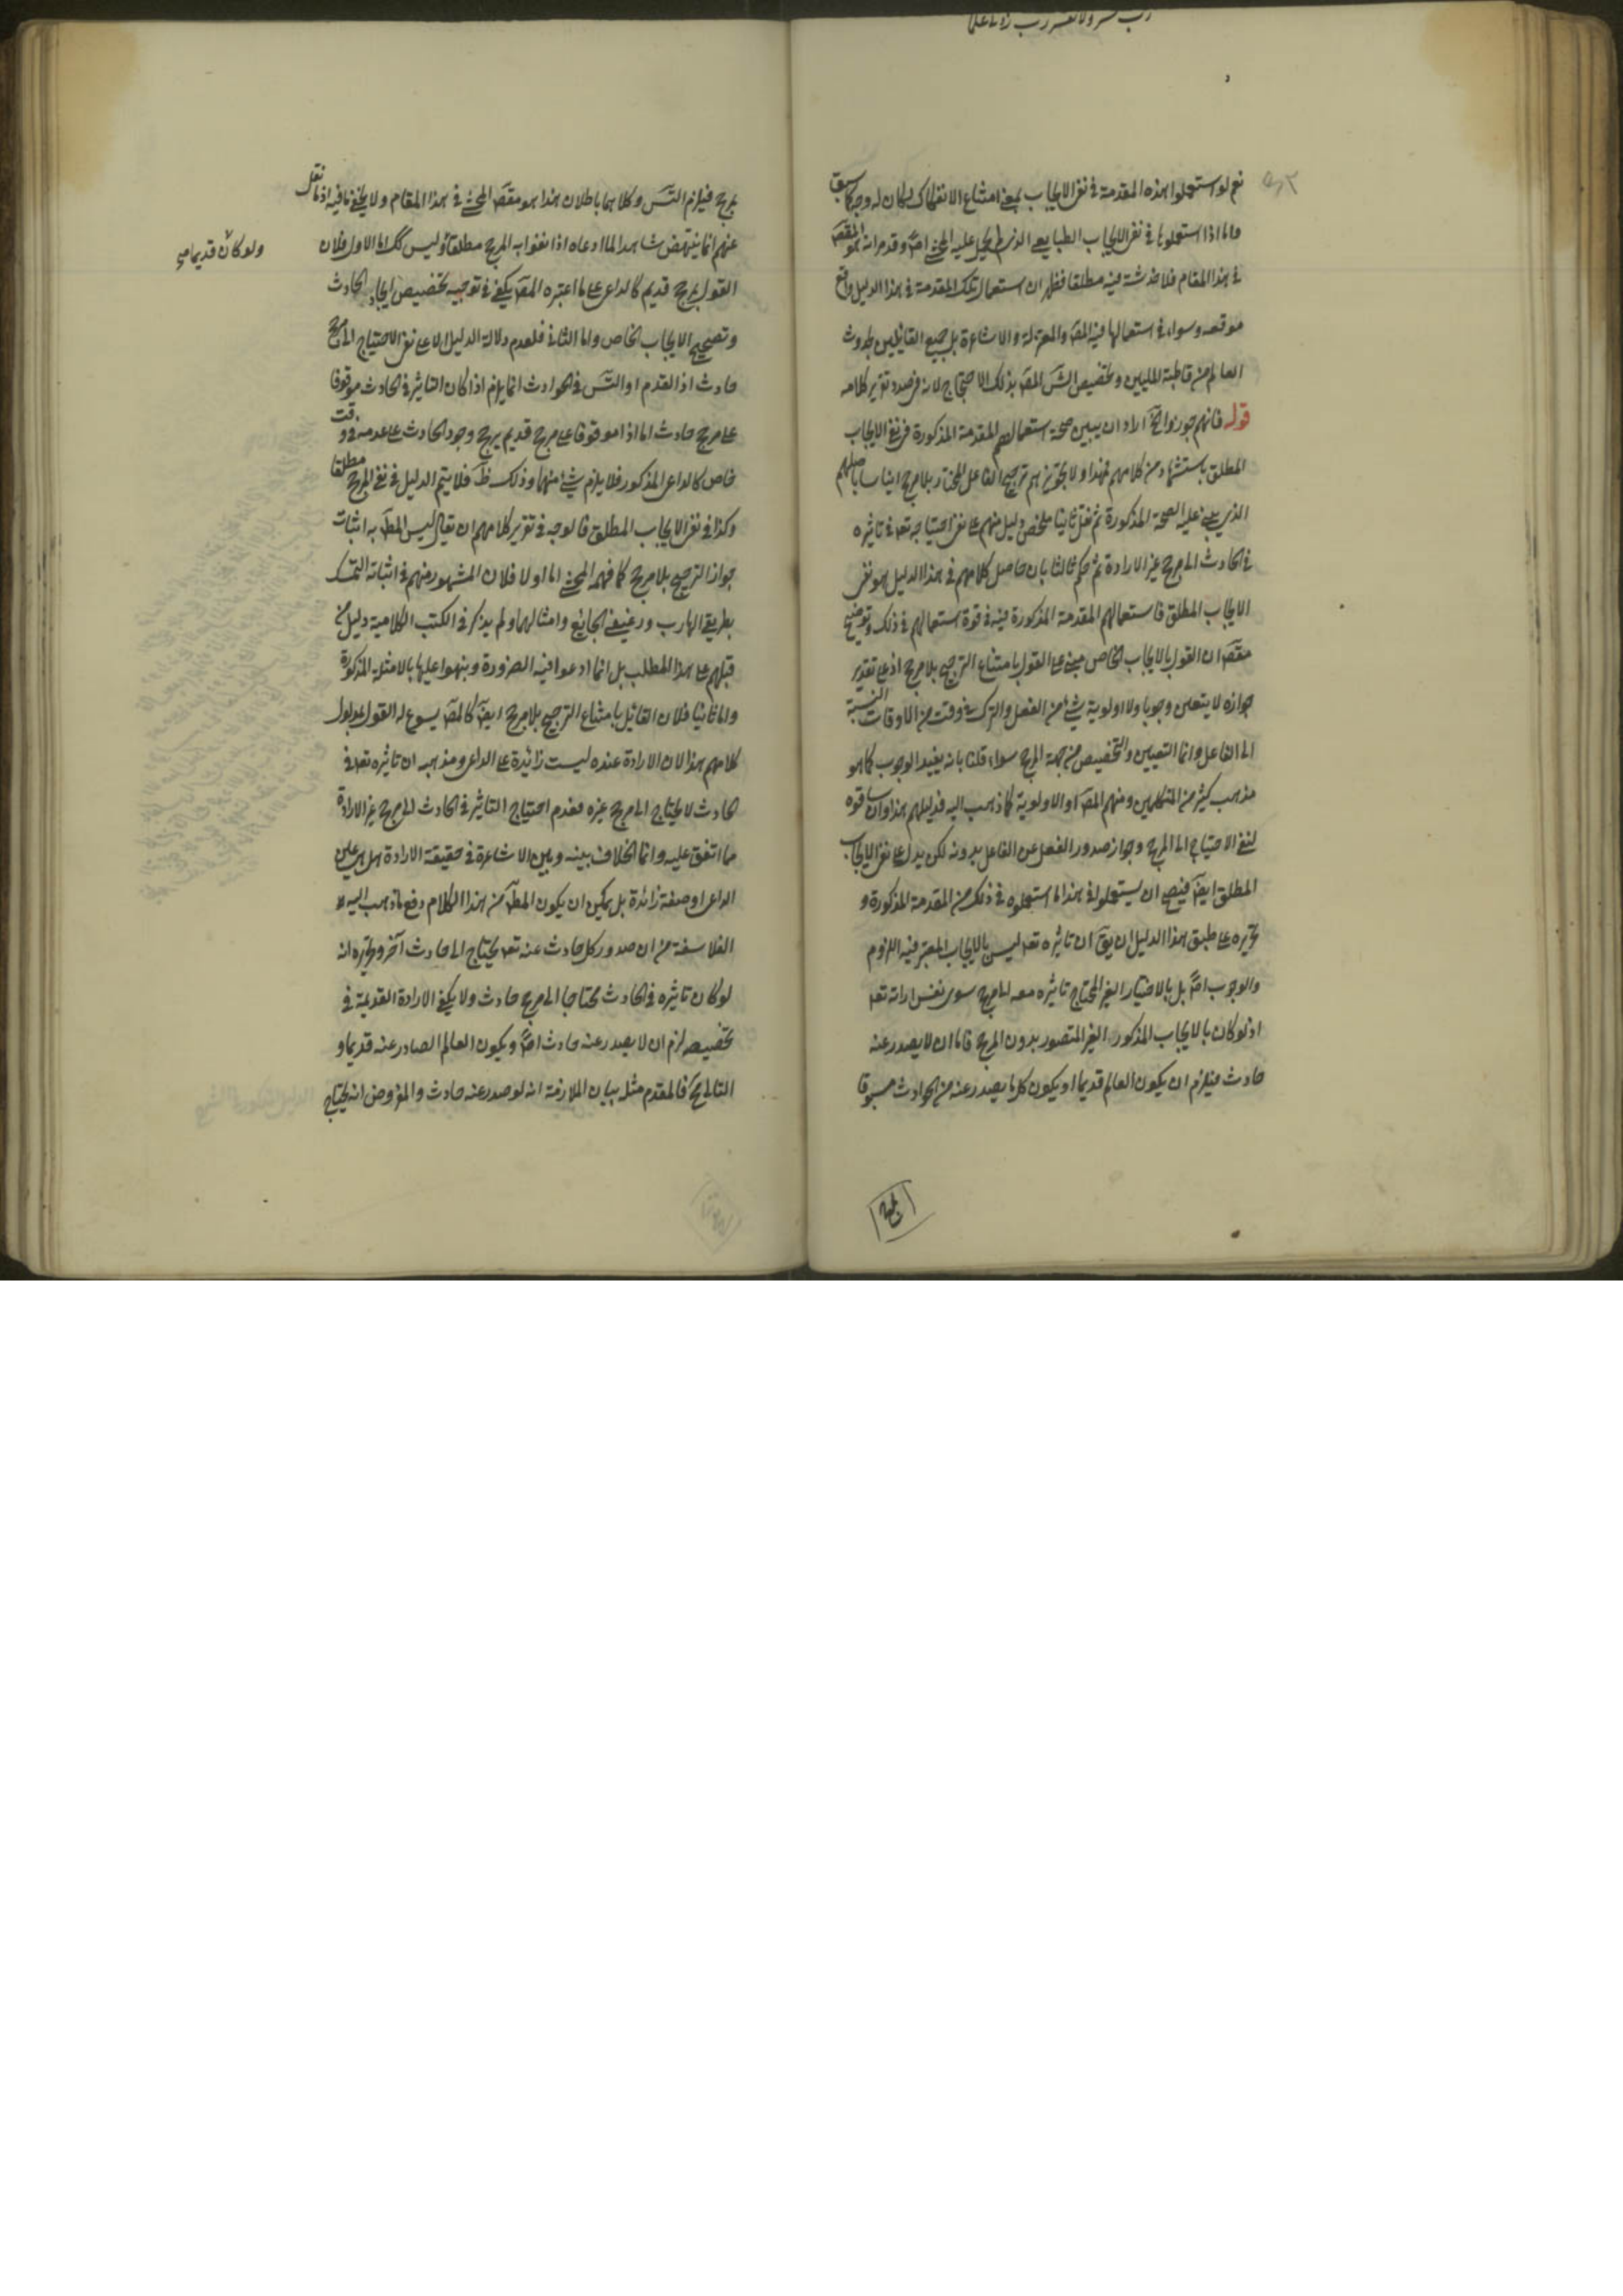 رب يسر ولا تعسر رب زدنا علما
نعم لو استعملوا هذه المقدمة في نفي الايجاب بمعنى امتناع الانفكاك لكان له وجه كما سبق
واما اذا استعملوها في نفي الايجاب الطبايعي الذي المحشي اصلا وقد مر انه هو المقصَ
في هذا المقام فلا خدشة فيه مطلقا فظهر ان استعمال تلك المقدمة في هذا الدليل واقع
موقعه وسواء في استعمالها فيه المصَ والمعتزلة والاشاعرة بل جميع القايلين بحدوث
العالم من قاطبة المليين وتخصيص الشَ المصَ بذلك الاحتجاج لانه في صدد تقرير كلامه
قوله فانهم جوزوا الخَ اراد ان يبين صحة استعمالهم المقدمة المذكورة في نفي الايجاب
المطلق باستشهاد من كلامهم فهذا ولا تجويزهم ترجيح الفاعل المختار بلا مرجح
الذي عليه الصحة المذكورة ثم نقل ثانيا ملخص دليل منهم على نفي احتياجه تعـ في تاثيره
في الحادث الى مرجح غير الارادة ثم حكم ثالثا بان حاصل كلامهم في هذا الدليل هو نفي
الايجاب المطلق فاستعمالهم المقدمة المذكورة فيه في قوة استعمالهم في ذلك وتوضيح
مقصَ ان القول بالايجاب الخاص مبني على القول بامتناع الترجيح بلا مرجح اذ على تقدير
جوازه لا يتعين وجوبا ولا اولوية شيء من الفعل والترك في وقت من الاوقات بالنسبة
الى الفاعل وانما التعيين والتخصيص من جهة المرجح سواء قلنا بانه يفيد الوجوب كما هو
مذهب كثير من المتكلمين ومنهم المصَ او الاولوية كما ذهب اليه فدليلهم هذا وان ساقوه
لنفي الاحتياج الى المرجح وجواز صدور الفعل عن الفاعل بدونه لكن يدل على نفي الايجاب
المطلق ايضَ فيصح ان يستعملوا في هذا ما استعملوه في ذلك من المقدمة المذكورة و
تحريره على طبق هذا الدليل ان يقَ ان تاثيره تعـ ليس بالايجاب المعتبر فيه اللزوم
والوجوب اصلا بل بالاختيار الغير المحتاج تاثيره معه الى مرجح سوى نفس ارادته تعـ
اذ لو كان بالايجاب المذكور الغير المتصور بدون المرجح فاما ان لا يصدر عنه
حادث فيلزم ان يكون العالم قديما او يكون كل ما يصدر عنه من الحوادث مسبوقا
بمرجح فيلزم التسَ وكلاهما باطلان هذا هو مقصَ المحشي في هذا المقام ولا يخفى ما فيه اذ ما نقل
عنهم انما ينتهض شاهدا لما ادعاه اذا نفوا به المرجح مطلقا وليس كك اما الاول فلان
القول بمرجح قديم كالداعي على ما اعتبره المصَ يكفي في توجيه تخصيص ايجاد الحادث
وتصحيح الايجاب الخاص واما الثاني فلعدم دلالة الدليل الا على نفي الاحتياج الى مرجح
حادث اذ القدم او التسَ في الحوادث انما يلزم اذا كان التاثير في الحادث موقوفا
على مرجح حادث اما اذا هو موقوفا على مرجح قديم يرجح وجود الحادث على عدمه في وقت
خاص كالداعي المذكور فلا يلزم شيء منهما وذلك ظَ فلا يتم الدليل في نفي المرجح مطلقا
وكذا في نفي الايجاب المطلق فالوجه في تقرير كلامهم ان يقال ليس المطَ به اثبات
جواز الترجيح بلا مرجح كما فهمه المحشي اما اولا فلان المشهور منهم في اثباته التمسك
بطريقي الهارب ورغيفي الجائع وامثالهما ولم يذكر في الكتب الكلامية دليل من
قبلهم على هذا المطلب بل انما ادعوا فيه الضرورة ونبهوا عليها بالامثلة المذكورة
واما ثانيا فلان القائل بامتناع الترجيح بلا مرجح ايضَ كالمصَ يسوع له القول بمدلول
كلامهم هذا لان الارادة عنده ليست زائدة على الداعي ومذهبه ان تاثيره تعـ في
الحادث لا يحتاج الى مرجح غيره فعدم احتياج التاثير في الحادث الى مرجح غير الارادة
مما اتفق عليه وانما الخلاف بينه وبين الاشاعرة في حقيقة الارادة هل هي عين
الداعي او صفة زائدة بل يمكن ان يكون المطَ من هذا الكلام دفع ما ذهب اليه
الفلاسفة من ان صدور كل حادث عنه تعـ يحتاج الى حادث آخر وتحريره انه
لو كان تاثيره في الحادث محتاجا الى مرجح حادث ولا يكفي الارادة القديمة في
تخصيصه لزم ان لا يصدر عنه حادث اصلا ويكون العالم الصادر عنه قديما و
التالي مح فالمقدم مثله بيان الملازمة انه لو صدر عنه حادث والمفروض انه يحتاج
ولو كان قديما صح